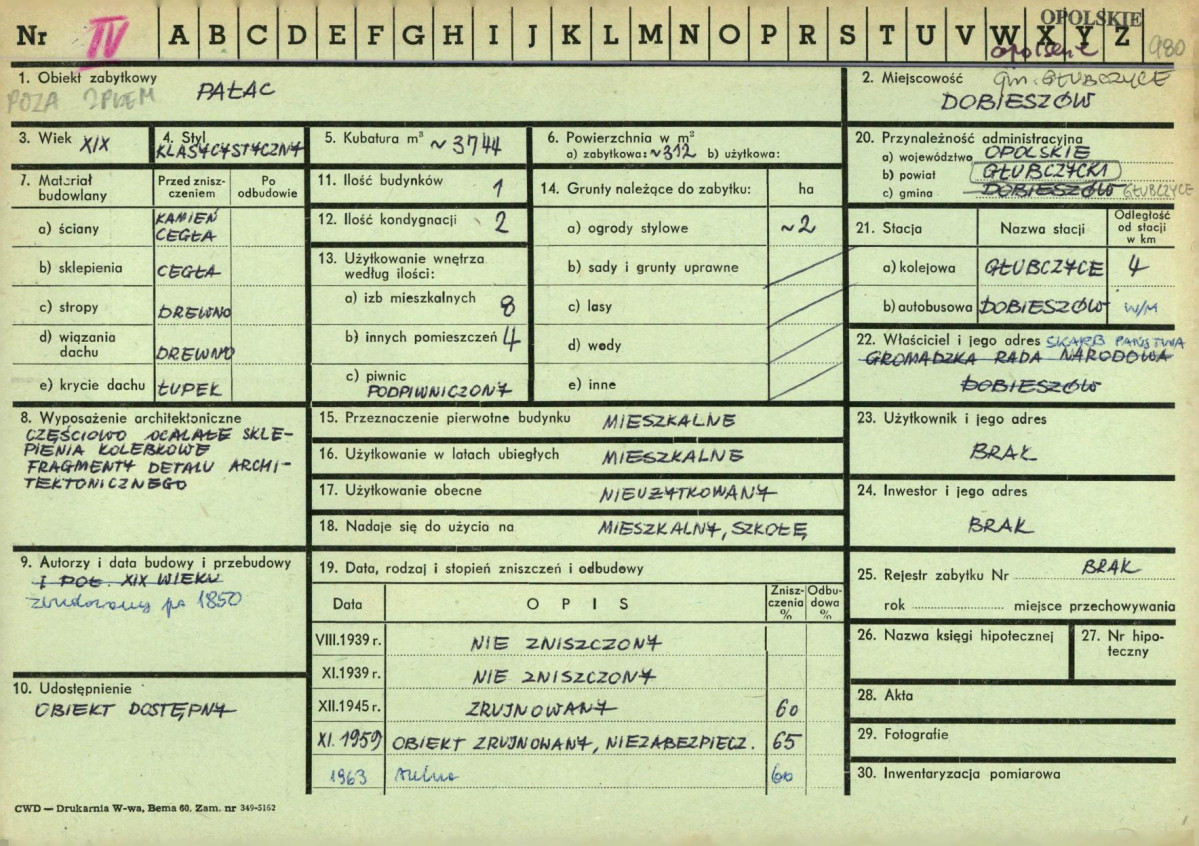 Nr IV A B C D E F G H I J K L M N O P R S T U V W X Y Z
OPOLSKIE
opolskie 980
1. Obiekt zabytkowy PAŁAC
POZA SPISEM
2. Miejscowość gm. GŁUBCZYCE
DOBIESZÓW
3. Wiek XIX
4. Styl
KLASYCYSTYCZNY
5. Kubatura m³ ~3744
6. Powierzchnia w m²
a) zabytkowa: ~312 b) użytkowa:
20. Przynależność administracyjna
a) województwo OPOLSKIE
b) powiat GŁUBCZYCKI
c) gmina DOBIESZÓW GŁUBCZYCE
7. Materiał budowlany
Przed zniszczeniem
Po odbudowie
a) ściany KAMIEŃ
CEGŁA
b) sklepienia CEGŁA
c) stropy DREWNO
d) wiązania dachu DREWNO
e) krycie dachu ŁUPEK
11. Ilość budynków 1
12. Ilość kondygnacji 2
13. Użytkowanie wnętrza według ilości:
a) izb mieszkalnych 8
b) innych pomieszczeń 4
c) piwnic
PODPIWNICZONY
14. Grunty należące do zabytku: ha
a) ogrody stylowe ~2
b) sady i grunty uprawne
c) lasy
d) wody
e) inne
21. Stacja Nazwa stacji Odległość od stacji w km
a) kolejowa GŁUBCZYCE 4
b) autobusowa DOBIESZÓW W/M
22. Właściciel i jego adres SKARB PAŃSTWA
GROMADZKA RADA NARODOWA
DOBIESZÓW
8. Wyposażenie architektoniczne
CZĘŚCIOWO OCALAŁE SKLE-
PIENIA KOLEBKOWE
FRAGMENTY DETALU ARCHI-
TEKTONICZNEGO
15. Przeznaczenie pierwotne budynku MIESZKALNE
16. Użytkowanie w latach ubiegłych MIESZKALNE
17. Użytkowanie obecne NIEUŻYTKOWANY
18. Nadaje się do użycia na MIESZKALNY, SZKOŁĘ
23. Użytkownik i jego adres
BRAK
24. Inwestor i jego adres
BRAK
9. Autorzy i data budowy i przebudowy
I POŁ. XIX WIEKU
zbudowany po 1850
10. Udostępnienie
OBIEKT DOSTĘPNY
19. Data, rodzaj i stopień zniszczeń i odbudowy
Data OPIS Zniszczenia % Odbudowa %
VIII.1939 r. NIE ZNISZCZONY
XI.1939 r. NIE ZNISZCZONY
XII.1945 r. ZRUJNOWANY 60
XI. 1959 OBIEKT ZRUJNOWANY, NIEZABEZPIECZ. 65
1963 60
25. Rejestr zabytku Nr BRAK
rok miejsce przechowywania
26. Nazwa księgi hipotecznej
27. Nr hipoteczny
28. Akta
29. Fotografie
30. Inwentaryzacja pomiarowa
CWD — Drukarnia W-wa, Bema 60. Zam. nr 349-5162